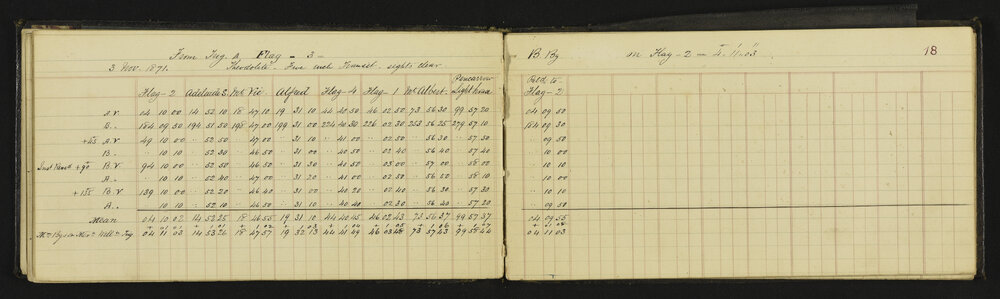 From Trig. a Flag - 3 -
B. By on Flag - 2 - 4°. 11'. 03"
18
3 Nov. 1871. Theodolite - Five inch Transit. sights clear
Pencarrow Back to
Flag - 2 Adelaide S. Mt Vic Alfred Flag - 4 Flag - 1 Mt Albert Lighthouse Flag - 2
A.V. 04 10 00 14 52 10 18 47 10 19 31 10 44 40 50 46 02 50 73 56 30 99 57 20 04 09 50
B.. 184 09 50 194 51 50 198 47 00 199 31 00 224 40 30 226 02 30 253 56 25 279 57 10 184 09 30
+45 A.V. 49 10 00 .. 52 50 .. 47 00 .. 31 10 .. 41 00 .. 02 50 .. 56 30 .. 57 30 .. 09 50
B.. .. 10 10 .. 52 30 .. 46 50 .. 31 00 .. 40 50 .. 02 40 .. 56 40 .. 57 40 .. 10 10
+90 B.V. 94 10 00 .. 52 50 .. 46 50 .. 31 30 .. 40 50 .. 03 00 .. 57 00 .. 58 00 .. 10 10
A.. .. 10 10 .. 52 40 .. 47 00 .. 31 20 .. 41 00 .. 02 50 .. 56 50 .. 58 10 .. 10 00
+135 B.V. 139 10 00 .. 52 20 .. 46 40 .. 31 00 .. 40 20 .. 02 40 .. 56 30 .. 57 30 .. 10 10
A.. .. 10 10 .. 52 10 .. 46 50 .. 31 10 .. 40 40 .. 02 30 .. 56 40 .. 57 20 .. 09 50
Mean 04 10 02 14 52 25 18 46 55 19 31 10 44 40 45 46 02 43 73 56 37 99 57 37 04 09 55
04 11 03 14 53 26 18 47 57 19 32 13 44 41 49 46 03 48 73 57 43 99 58 44 04 11 03